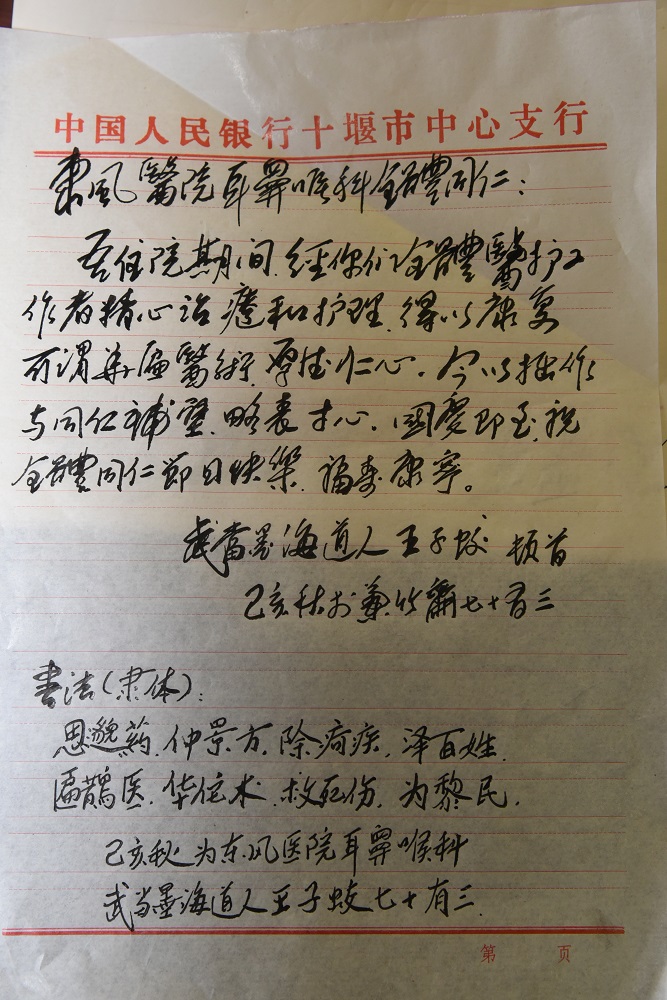 中国人民银行十堰市中心支行
東風醫院耳鼻喉科全體同仁：
吾住院期间，經你们全體醫护工
作者精心治療和护理，得以康复
可谓華扁醫術，厚德仁心。今以拙作
与同仁補壁，略表寸心。國慶即至，祝
全體同仁節日快樂，福壽康寧。
武當墨海道人王子蛟 顿首
己亥秋於兼竹齋七十有三
書法（隶体）：
思邈药，仲景方，除疴疾，泽百姓，
扁鹊医，华佗术，救死伤，为黎民，
己亥秋为东风医院耳鼻喉科
武当墨海道人王子蛟七十有三
第 页